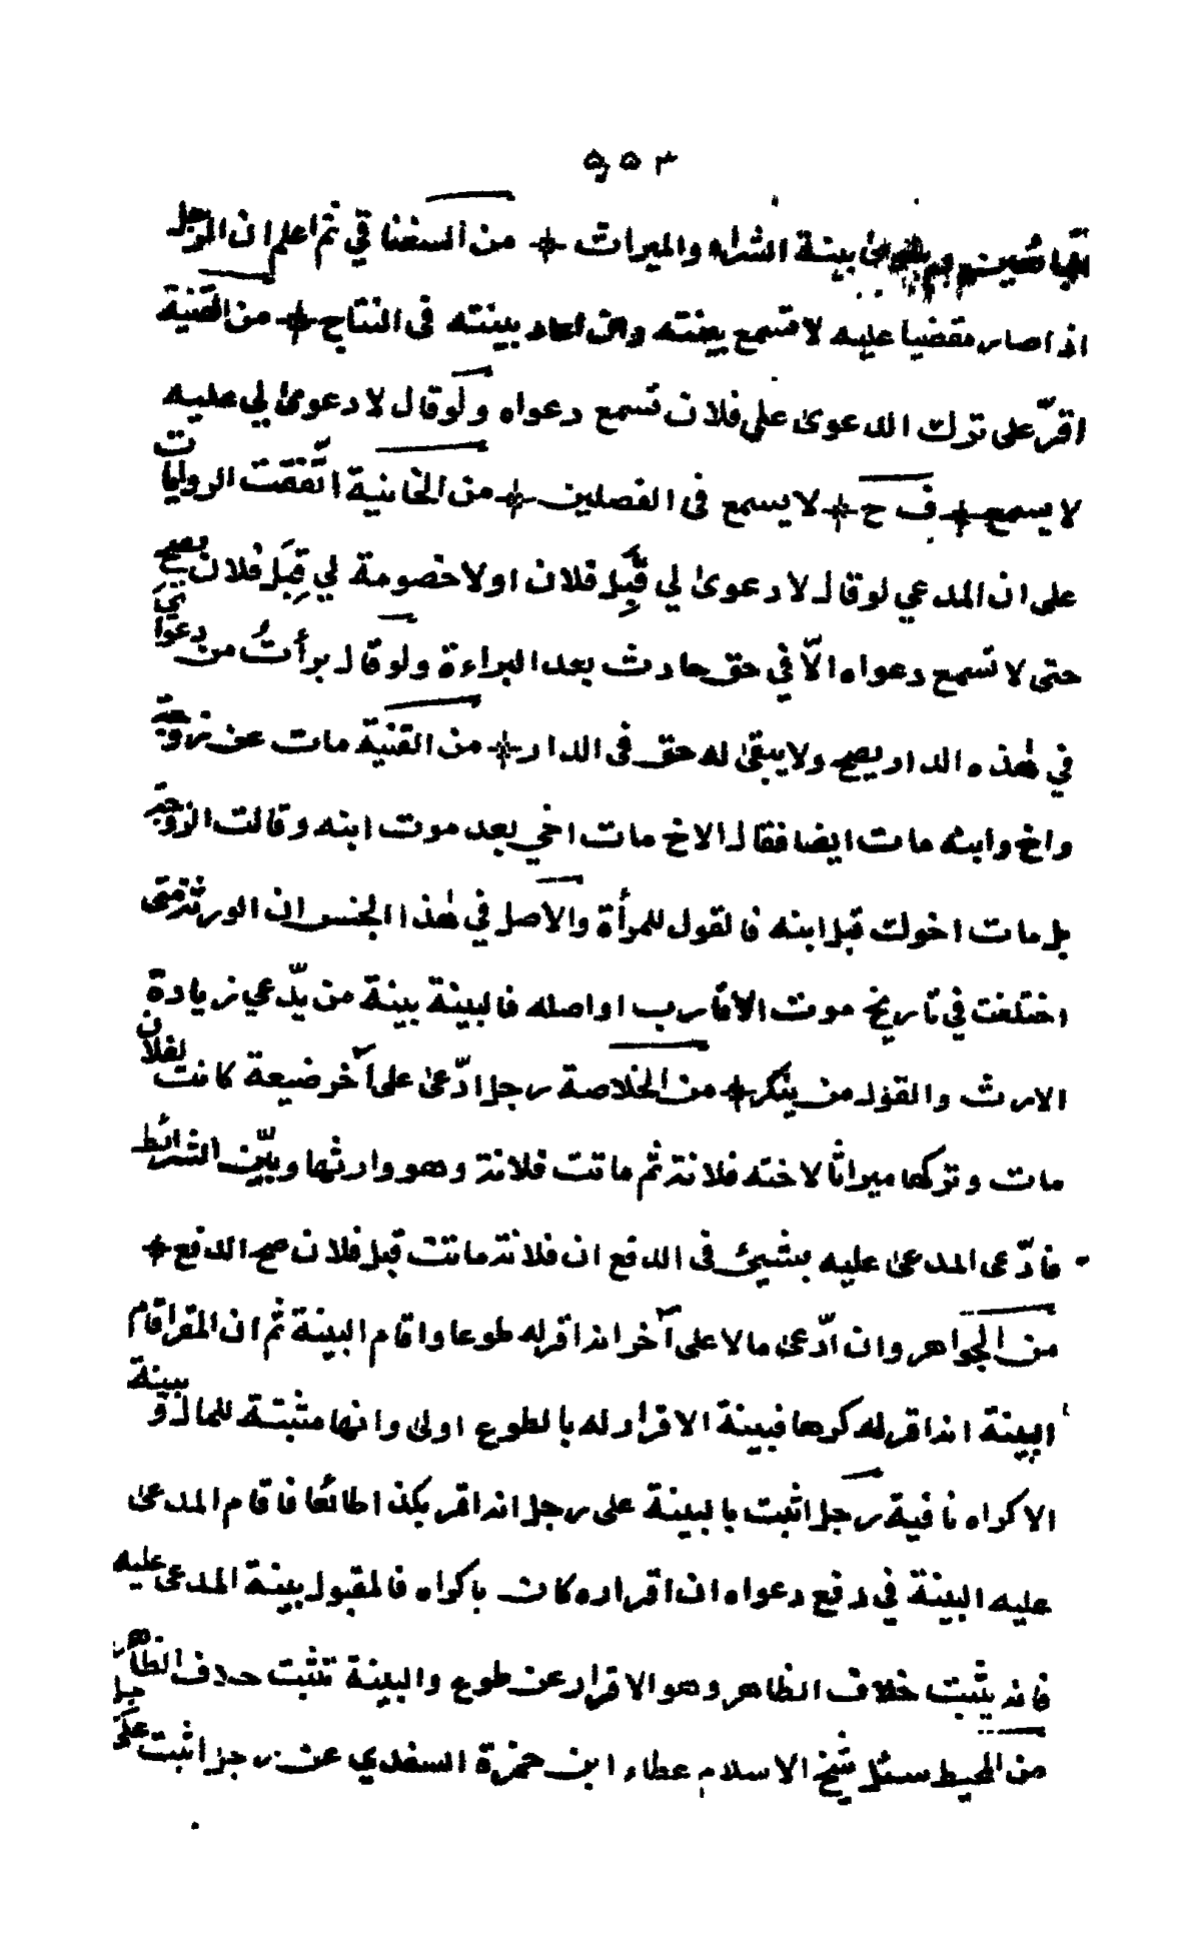 ۵۵۳
بينة الشراء والميراث + من السغناقي ثم اعلم ان الرجل
اذا صار مقضيا عليه لا تسمع بينته وان اعاد بينته فى النتاج + من القنية
اقرّ على ترك الدعوى على فلان تسمع دعواه ولو قال لا دعوى لي عليه
لا يسمع + ف ح + لا يسمع فى الفصلين + من الخانية اتّفقت الروايات
على ان المدعي لو قال لا دعوىٰ لي قِبَل فلان او لا خصومة لي قِبَل فلان يصح
حتى لا تسمع دعواه الاّ في حق حادث بعد البراءة ولو قال برأتُ من دعواي
في هٰذه الدار يصح ولا يبقىٰ له حق فى الدار + من القنية مات عن زوجة
واخ وابنه مات ايضا فقال الاخ مات اخي بعد موت ابنه وقالت الزوجة
بل مات اخوك قبل ابنه فالقول للمرأة والاصل في هٰذا الجنس ان الورثة متى
اختلفت في تاريخ موت الاقارب او اصله فالبينة بينة من يدّعي زيادة
الارث والقول من ينكر + من الخلاصة رجل ادّعىٰ على آخر ضيعة كانت لفلان
مات وتركها ميراثا لاخته فلانة ثم ماتت فلانة وهو وارثها وبيّن الشرائط
فادّعى المدعىٰ عليه بشيئ فى الدفع ان فلانة ماتت قبل فلان صح الدفع +
من الجواهر وان ادّعىٰ مالا على آخر انه اقر له طوعا واقام البينة ثم ان المقر اقام
البينة انه اقر له كرها فبينة الاقرار له بالطوع اولىٰ وانها مثبتة للمال و بينة
الاكراه نافية رجل اثبت بالبينة على رجل انه اقر بكذا طائعا فاقام المدعىٰ
عليه البينة في دفع دعواه ان اقراره كان باكراه فالمقبول بينة المدعى عليه
فانه يثبت خلاف الظاهر وهو الاقرار عن طوع والبينة تثبت خلاف الظاهر
من المحيط سئل شيخ الاسلام عطاء ابن حمزة السغدي عن رجل اثبت على رجل